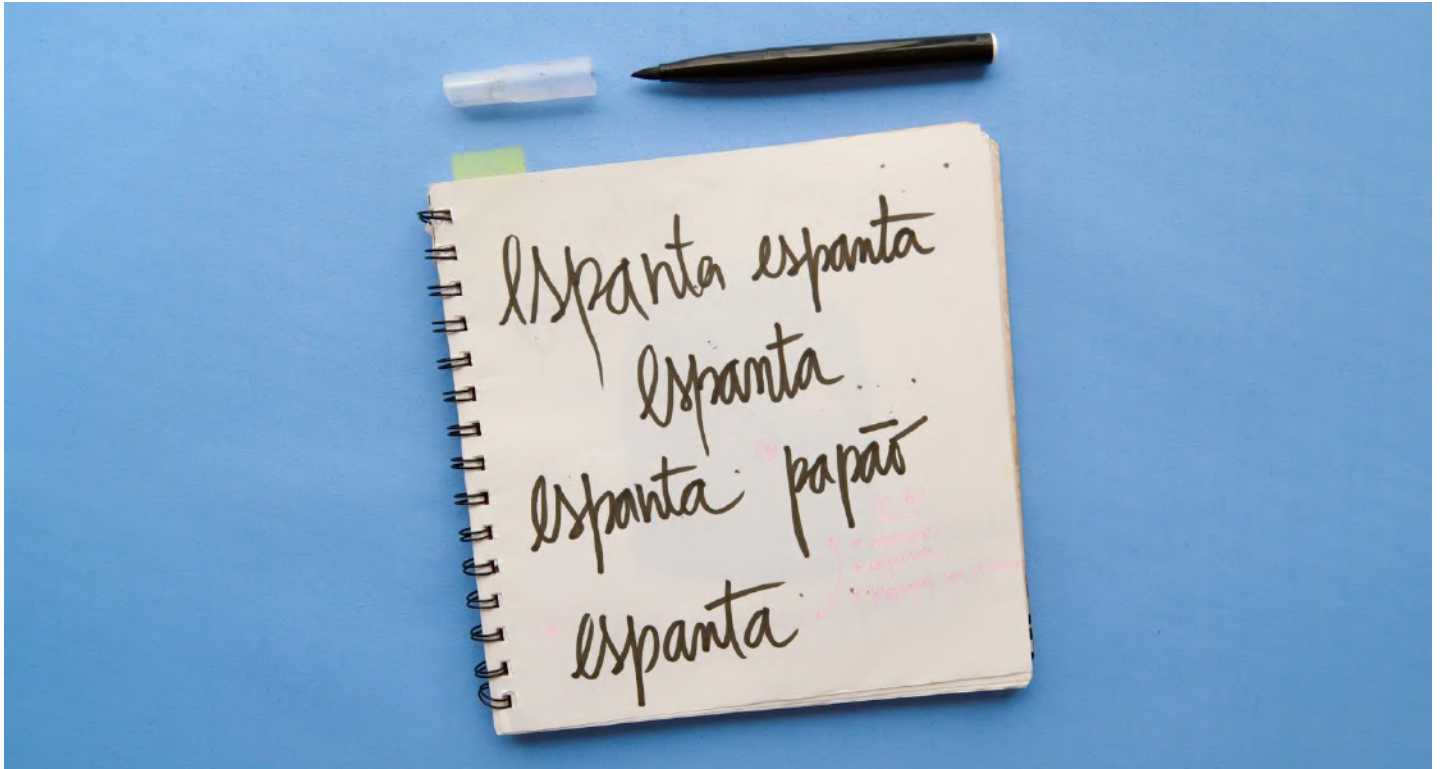 espanta espanta
espanta
espanta papão
espanta